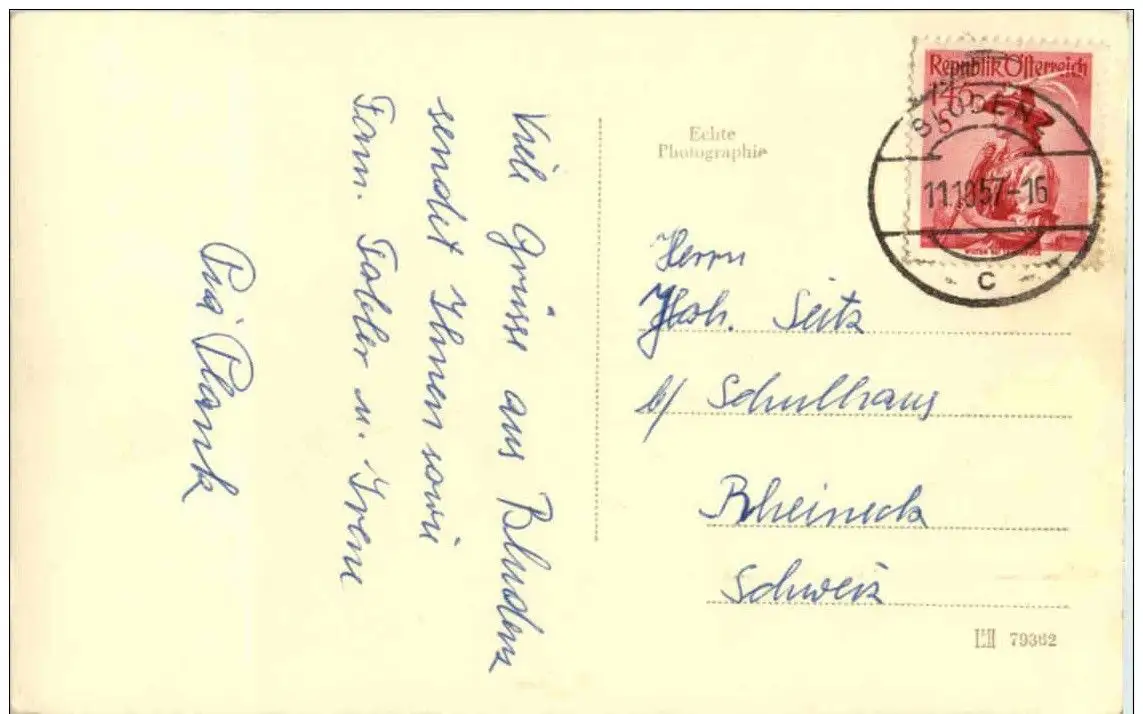 Viele Grüsse aus Bludenz
sendet Ihnen sowie
Fam. Tobler u. Irene
Pia Plank
Echte
Photographie
Republik Österreich
1·45
BLUDENZ
11.10.57-16
c
Herrn
Joh. Seitz
b/ Schulhaus
Rheineck
Schweiz
79362